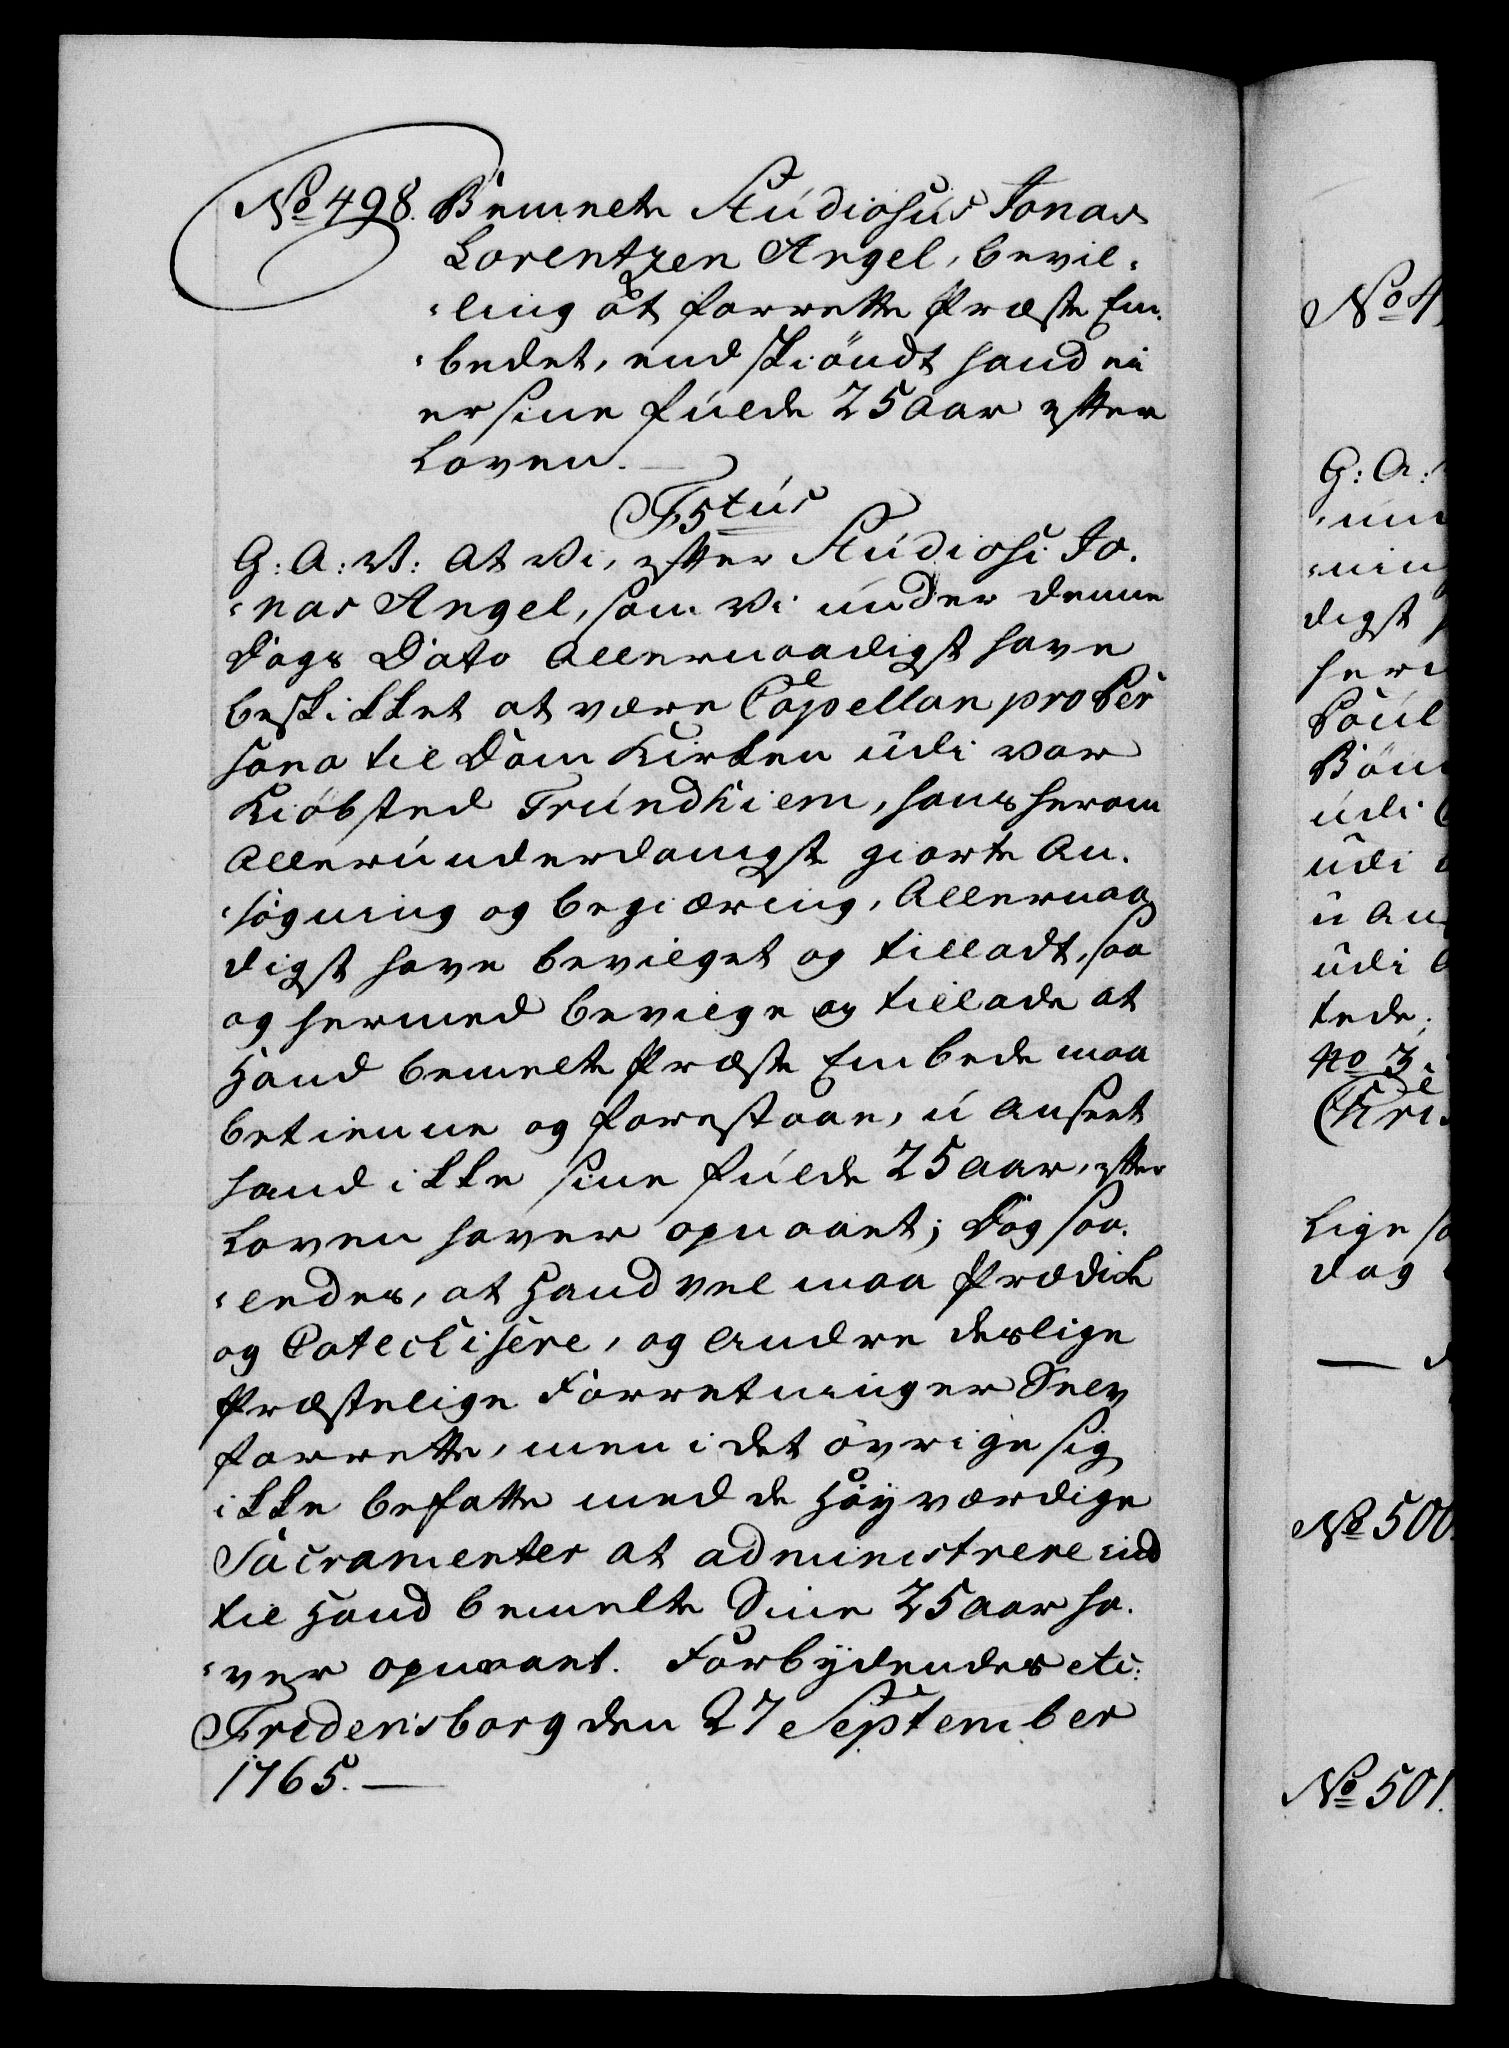 No 498. Bemnete Studiosus Jonas
Lorentzen Angel, bevil-
-ling at forrette Præste Em-
-bedet, endskiöndt hand ei
er sine fulde 25 Aar efter
Loven.
F 5tus
G: A: V: At Vi, efter Studiosi Jo-
-nas Angel, som Vi under denne
Dags Dato Allernaadigst have
beskikket at være Capellan pro Per
sona til Dom Kirken udi vor
Kiöbsted Trundhiem, hans herom
Allerunderdanigst giorte An-
-søgning og begiæring, Allernaa
digst have bevilget og tilladt, saa
og hermed bevilge og tillade at
Hand bemelte Præste Embede maa
betienne og forestaae, u anseet
hand ikke sine fulde 25 Aar, efter
Loven haver opnaaet; Dog saa-
-ledes, at Hand vel maa Prædike
og Catechisere, og Andre deslige
Præstelige Forretninger Selv
forrette, men i det övrige sig
ikke befatte med de Höyværdige
Sacramenter at administrere ind
til Hand bemelte Sine 25 Aar ha-
-ver opnaaet. Forbydendes etc:
Fredensborg den 27 September
1765.
No 4
G: A:
digst
Poul
udi
udi
u An
udi
tede;
No 3
Chri
Lige so
dog
No 500
No 501.